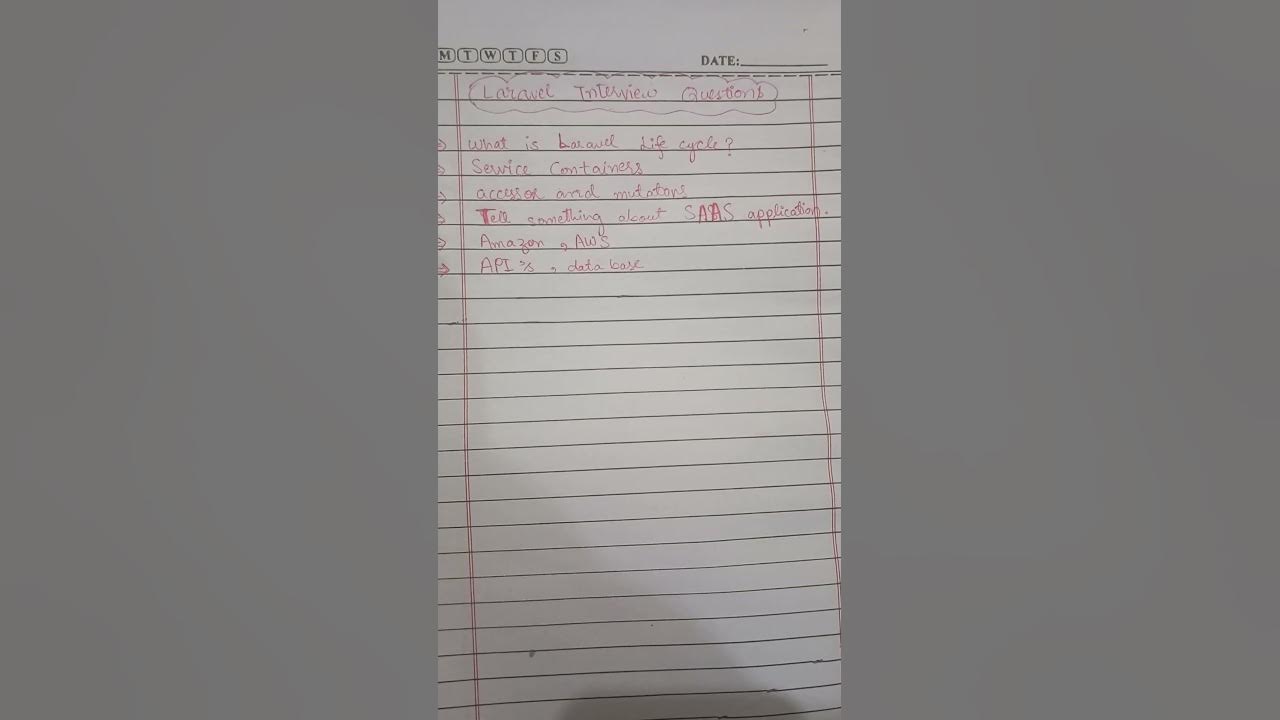 M T W T F S
DATE:
Laravel Interview Questions
What is Laravel Life cycle?
Service Containers
accessor and mutators
Tell something about SAAS application.
Amazon , AWS
API's , data base